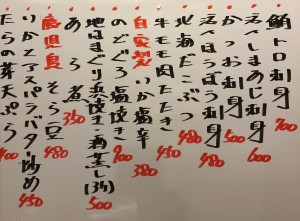 鮪トロ刺身 700
天〆しまあじ刺身 600
かつお刺身 500
天然ほうぼう刺身 480
北海だこぶつ 480
牛モモ肉たたき 450
自家製 いか塩辛 380
のどぐろ塩焼き 900
地はまぐり浜焼き・酒蒸し(3ケ) 500
あら煮 350
鹿児島 そら豆 480
いかとアスパラバター炒め 450
たらの芽天ぷら 400